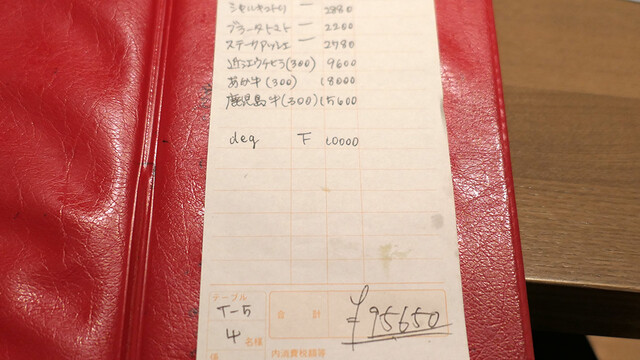 シャルキュトリ 一 2880
ブラータトマト 一 2200
ステークアッシェ 一 2780
(300) 9600
あか牛(300) 18000
鹿児島牛(300) 15600
deg F 10000
テーブル
T-5
4 名様
係
合計 ¥95650
内消費税額等